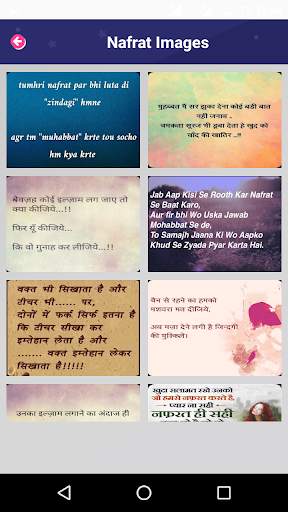 Nafrat Images
tumhri nafrat par bhi luta di
"zindagi" hmne
agr tm "muhabbat" krte tou socho
hm kya krte
मुहब्बत मैं सर झुका देना कोई बडी बात
नही जनाब ..
चमकता सूरज भी डूबा देता है खुद को
चाँद की खातिर ..!!
बेवज़ह कोई इल्ज़ाम लग जाए तो
क्या कीजिये...!!
फिर यूँ कीजिये....
कि वो गुनाह कर लीजिये...!
Jab Aap Kisi Se Rooth Kar Nafrat
Se Baat Karo,
Aur fir bhi Wo Uska Jawab
Mohabbat Se de,
To Samajh Jaana Ki Wo Aapko
Khud Se Zyada Pyar Karta Hai.
वक्त भी सिखाता है और
टीचर भी..... पर,
दोनों में फर्क सिर्फ इतना है
कि टीचर सीखा कर
इम्तेहान लेता है और
वक्त इम्तेहान लेकर
सिखाता है!!!!!
चैन से रहने का हमको
मशवरा मत दीजिये,
अब मजा देने लगी है जिन्दगी
की मुश्किलें।
उनका इल्ज़ाम लगाने का अंदाज ही
खुदा सलामत रखे उनको
जो हमसे नफरत करते है,
प्यार ना सही
नफ़रत ही सही